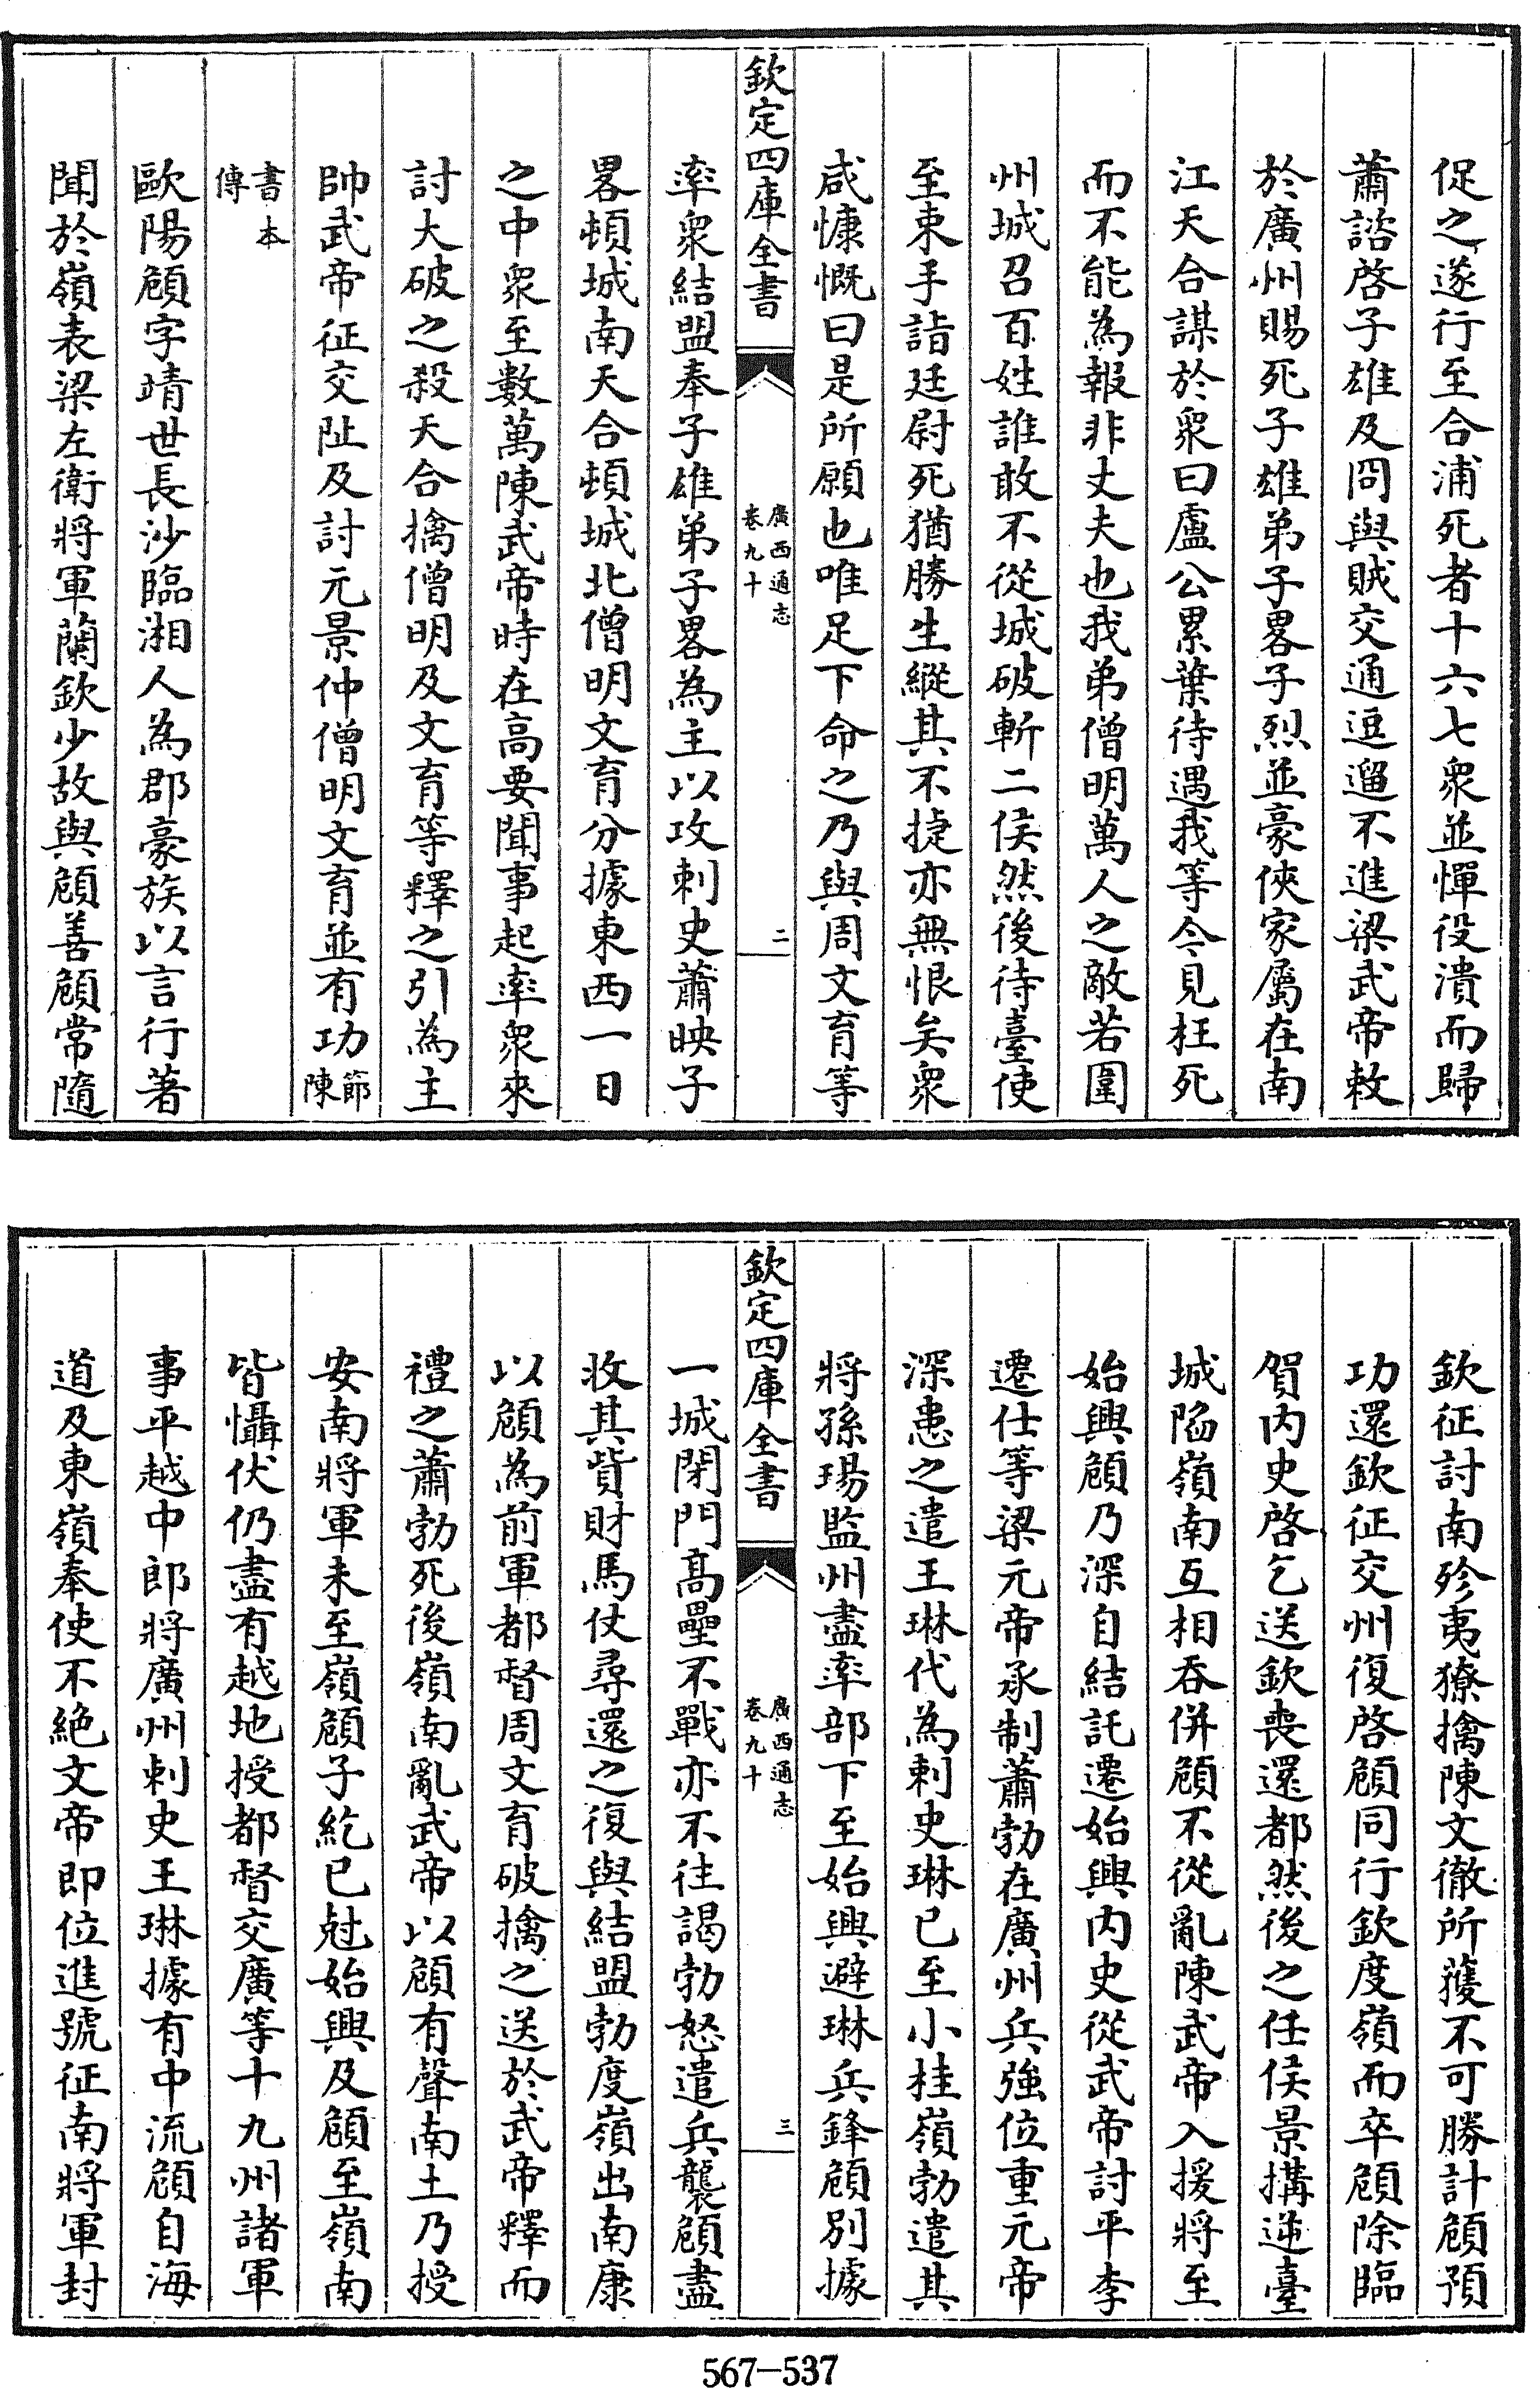 促之遂行至合浦死者十六七衆並憚役潰而歸
蕭諮啓子雄及冏與賊交通逗遛不進梁武帝敕
於廣州賜死子雄弟子畧子烈並豪俠家屬在南
江天合謀於衆曰盧公累葉待遇我等今見枉死
而不能為報非丈夫也我弟僧明萬人之敵若圍
州城召百姓誰敢不從城破斬二侯然後待臺使
至束手詣廷尉死猶勝生縱其不捷亦無恨矣衆
咸慷慨曰是所願也唯足下命之乃與周文育等
欽定四庫全書
廣西通志
卷九十
二
率衆結盟奉子雄弟子畧為主以攻刺史蕭映子
畧頓城南天合頓城北僧明文育分據東西一日
之中衆至數萬陳武帝時在高要聞事起率衆來
討大破之殺天合擒僧明及文育等釋之引為主
帥武帝征交阯及討元景仲僧明文育並有功節陳
書本傳
歐陽頠字靖世長沙臨湘人為郡豪族以言行著
聞於嶺表梁左衛將軍蘭欽少故與頠善頠常隨
欽征討南殄夷獠擒陳文徹所獲不可勝計頠預
功還欽征交州復啓頠同行欽度嶺而卒頠除臨
賀内史啓乞送欽喪還都然後之任侯景搆逆臺
城陷嶺南互相吞併頠不從亂陳武帝入援將至
始興頠乃深自結託遷始興内史從武帝討平李
遷仕等梁元帝承制蕭勃在廣州兵強位重元帝
深患之遣王琳代為刺史琳已至小桂嶺勃遣其
將孫瑒監州盡率部下至始興避琳兵鋒頠別據
欽定四庫全書
廣西通志
卷九十
三
一城閉門高壘不戰亦不往謁勃怒遣兵襲頠盡
收其貲財馬仗尋還之復與結盟勃度嶺出南康
以頠為前軍都督周文育破擒之送於武帝釋而
禮之蕭勃死後嶺南亂武帝以頠有聲南土乃授
安南將軍未至嶺頠子紇已尅始興及頠至嶺南
皆懾伏仍盡有越地授都督交廣等十九州諸軍
事平越中郎將廣州刺史王琳據有中流頠自海
道及東嶺奉使不絶文帝即位進號征南將軍封
567-537